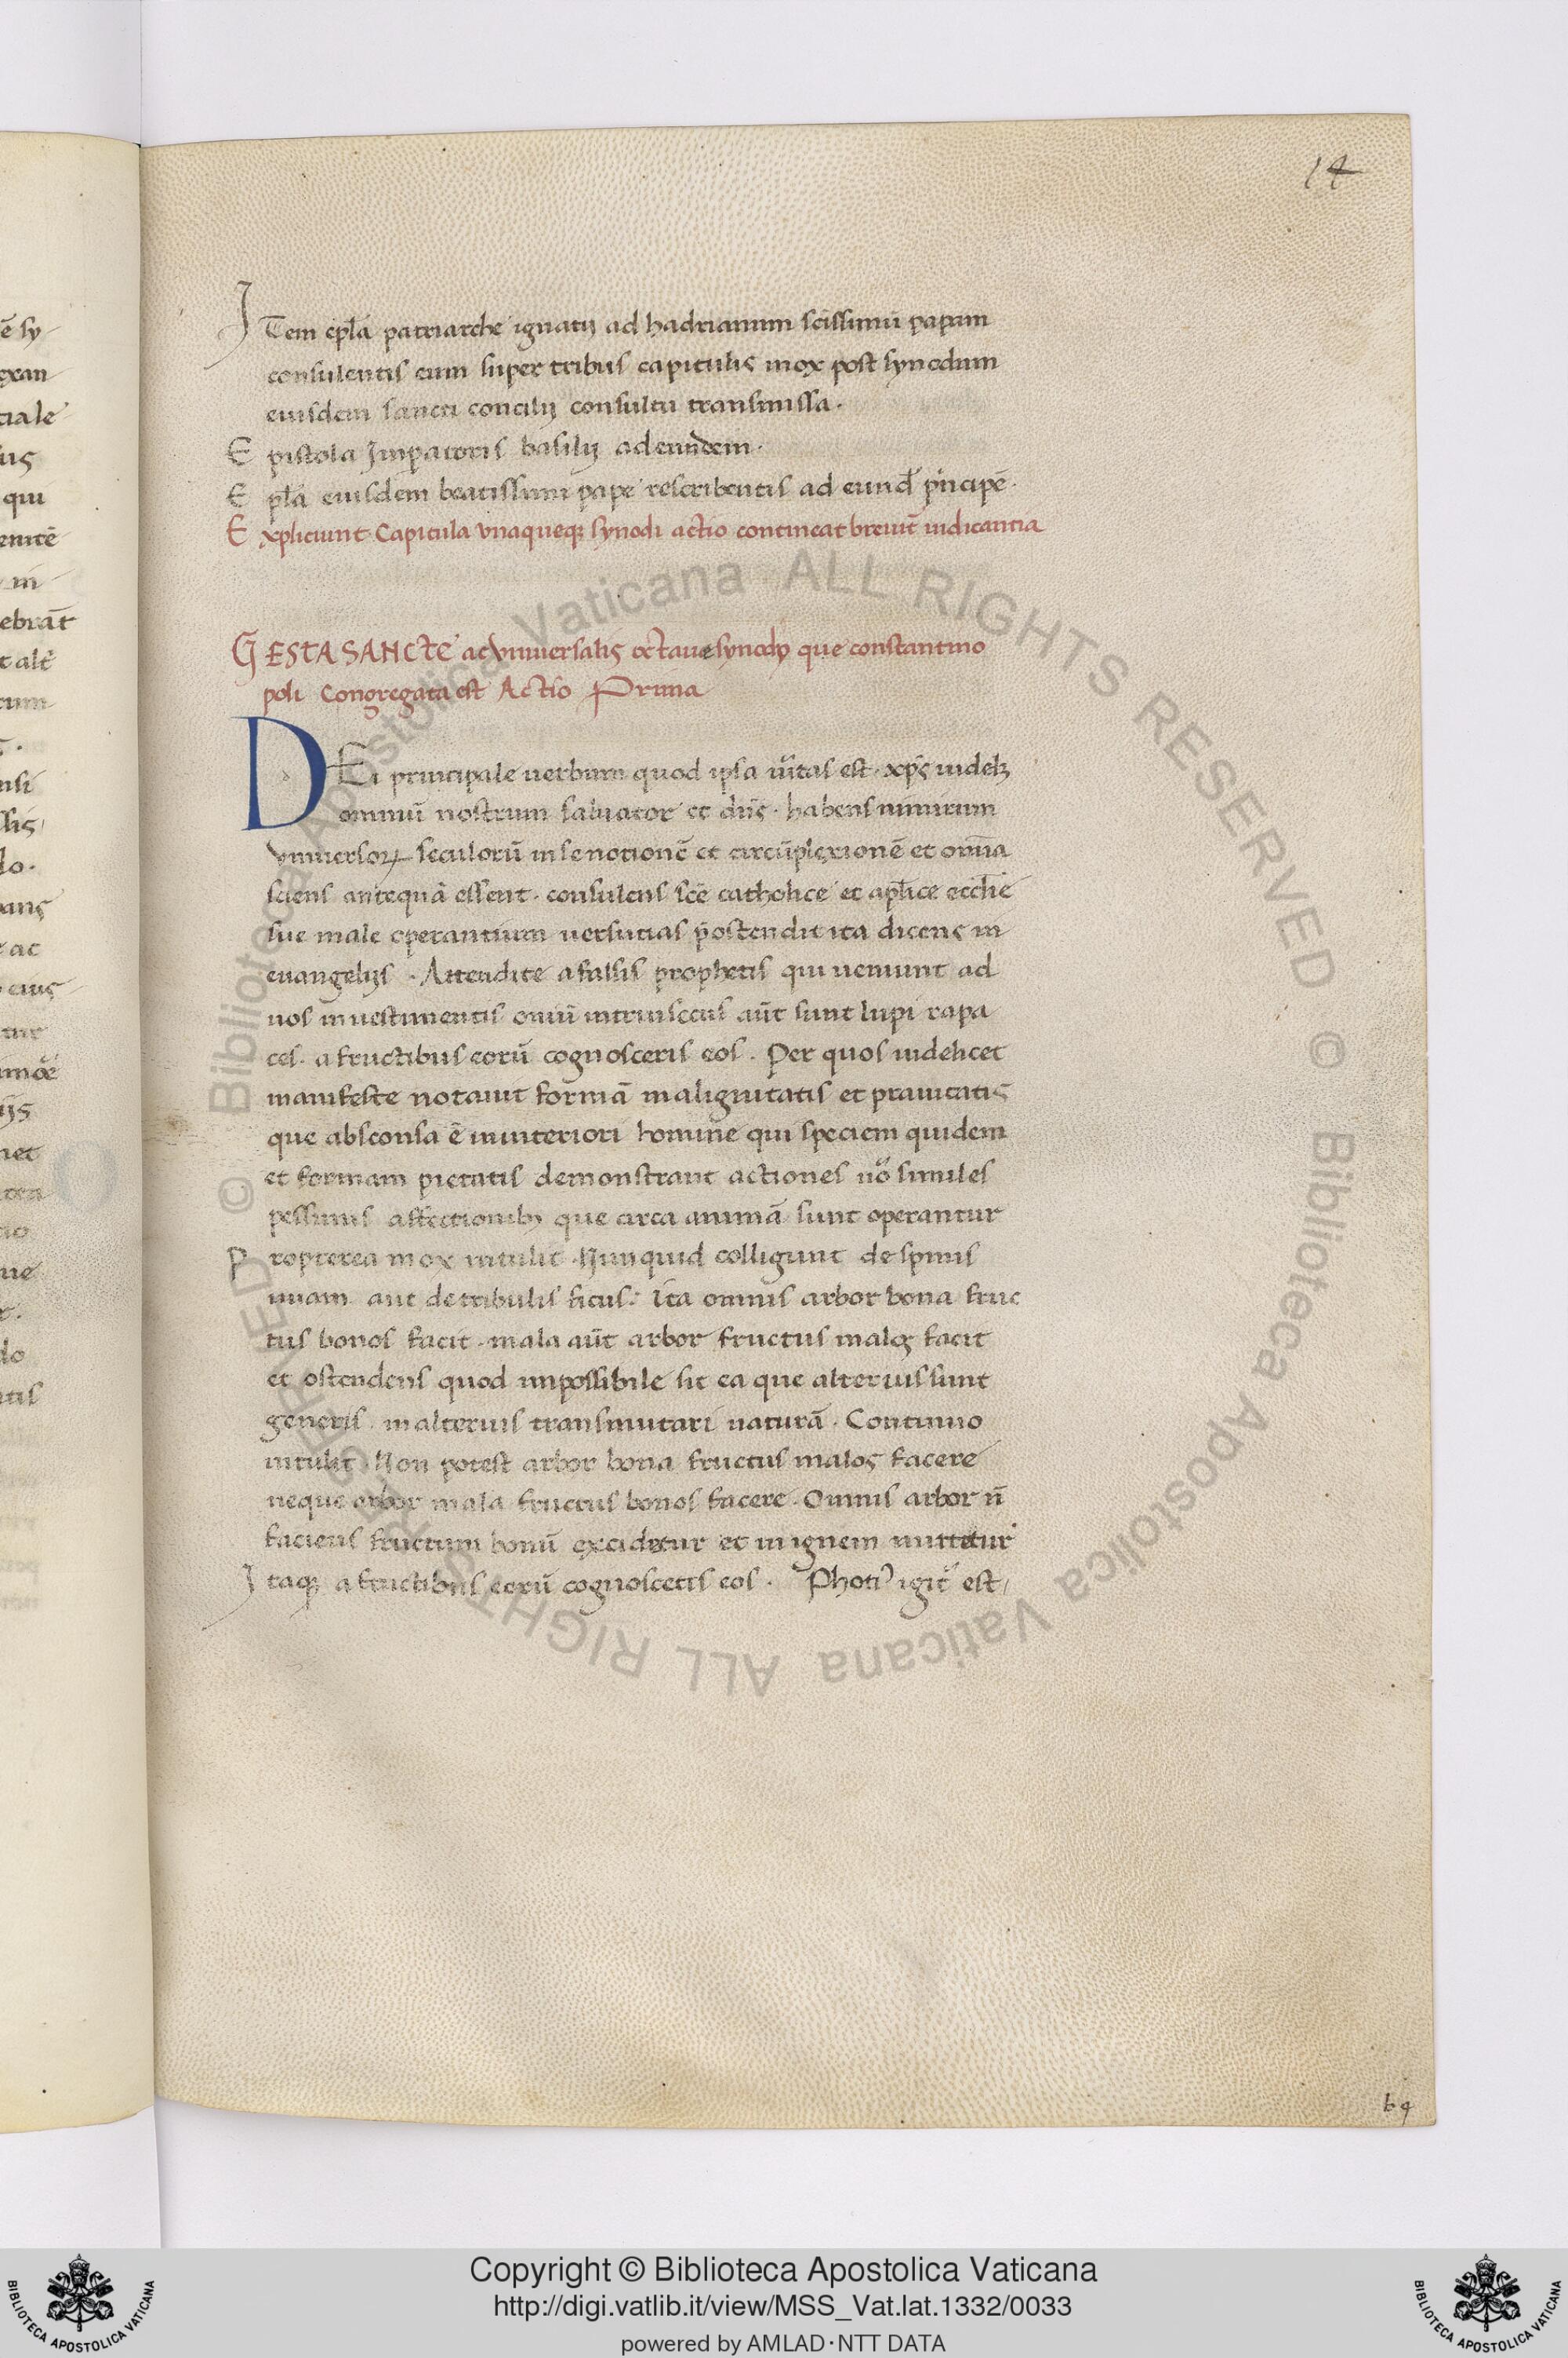 14
ITem epl̄a patriarche ignatij ad hadrianum sc̄issimū papam
consulentis eum super tribus capitulis mox post synodum
eiusdem sancti concilij consultu transmissa.
Epistola Imp̄atoris basilij ad eundem.
Epl̄a eiusdem beatissimi pape rescribentis ad eund̄ p̄ncipē.
Expliciunt Capitula vnaqueq; synodi actio contineat breuit̄ indicantia
GESTA SANCTE ac vniuersalis octaue synody que constantino
poli Congregata est Actio Prima
DEi principale uerbum quod ipsa ūitas est. xp̄s uidelz
omniū nostrum saluator et dn̄s. habens nimirum
vniuersoꝝ seculorū in se notionē et circūplexionē et omīa
sciens antequā essent. consulens sc̄e catholice et apl̄ice eccl̄ie
sue male operantium uersutias p̄ostendit ita dicens in
euangelijs. Attendite a falsis prophetis qui ueniunt ad
uos in uestimentis ouiū intrinsecus aūt sunt lupi rapa
ces. a fructibus eorū cognosceris eos. Per quos uidelicet
manifeste notauit formā malignitatis et prauitatis
que absconsa ē in interiori homine qui speciem quidem
et formam pietatis demonstrant actiones ūo similes
pessimis affectionibꝫ que circa animā sunt operantur
Propterea mox intulit. Nunquid colligunt de spinis
uuam aut de tribulis ficus: Ita omnis arbor bona fruc
tus bonos facit. mala aūt arbor fructus malos facit
et ostendens quod impossibile sit ea que alterius sunt
generis. in alterius transmutari naturā. Continuo
intulit. Non potest arbor bona fructus malos facere
neque arbor mala fructus bonos facere. Omnis arbor n̄
faciens fructum bonū excidetur et in ignem mittetur
Itaq; a fructibus eorū cognoscetis eos. Photiꝰ igit̄ est
b 4
ē sy
exan
ciale
ius
qui
enitē
in
ebrāt
t alt̄
cum
nsi
ssis
lo.
ans
ac
eius
tur
ijs
net
tea
tio
ue
do
atis
© Biblioteca Apostolica Vaticana ALL RIGHTS RESERVED © Biblioteca Apostolica Vaticana ALL RIGHTS RESERVED
Copyright © Biblioteca Apostolica Vaticana
http://digi.vatlib.it/view/MSS_Vat.lat.1332/0033
powered by AMLAD·NTT DATA
BIBLIOTECA APOSTOLICA VATICANA
BIBLIOTECA APOSTOLICA VATICANA